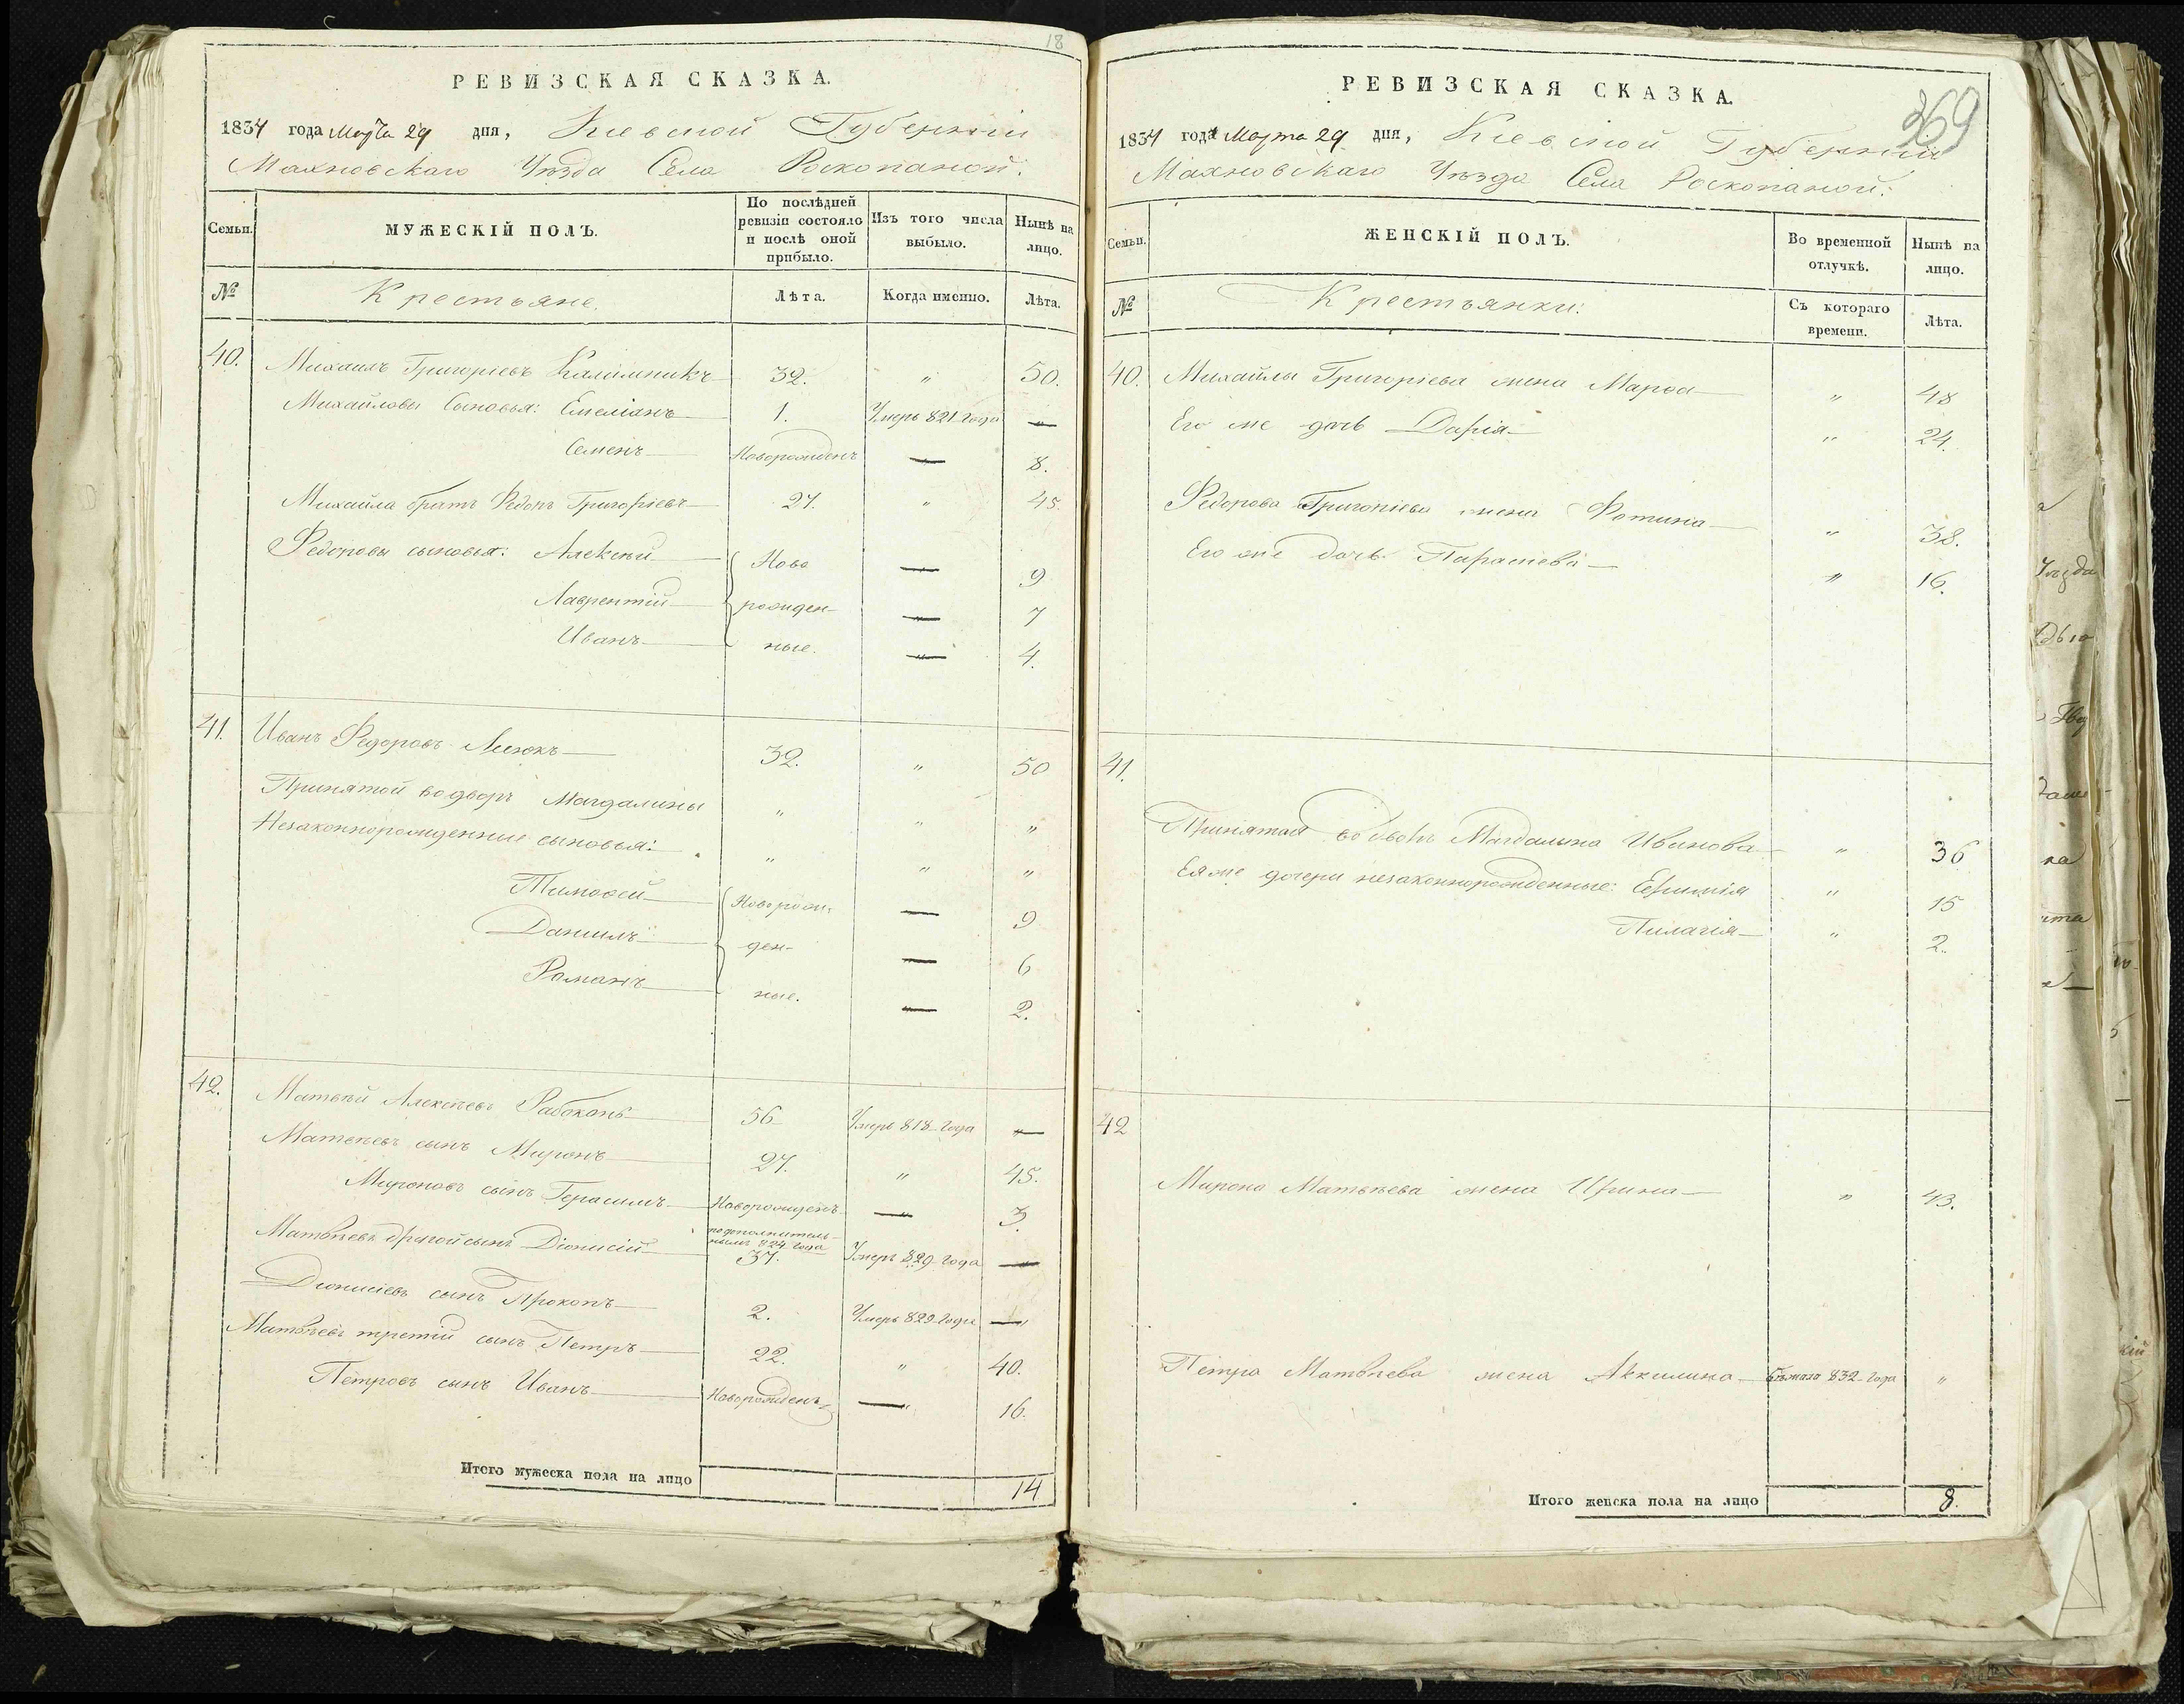 18
РЕВИЗСКАЯ СКАЗКА.
1834 года Марта 29 дня, Киевской Губерніи
Махновскаго Уѣзда Села Роскопаной:
Семьи.
МУЖЕСКІЙ ПОЛЪ.
По послѣдней ревизіи состояло и послѣ оной прибыло.
Изъ того числа выбыло.
Нынѣ на лицо.
№ Крестьяне. Лѣта. Когда именно. Лѣта.
40. Михаилъ Григоріевъ 32. " 50.
Михайловы Сыновья: Емеліанъ 1. Умеръ 821 года "
Семенъ Новорожденъ " 8.
Михайла братъ Федоръ Григоріевъ 27. " 45.
Федоровы сыновья: Алексѣй Ново " 9
Лаврентій рожден- " 7
Иванъ ные. " 4.
41. Иванъ Федоровъ 32. " 50
Принятой во дворъ Магдалины " " "
Незаконнорожденные сыновья: " " "
Тимоѳей Новорож- " 9
Даниилъ ден- " 6
Романъ ные. " 2.
42. Матвѣй Алексѣевъ Рабоконь 56 Умеръ 818 года "
Матвѣевъ сынъ Миронъ 27. " 45.
Мироновъ сынъ Герасимъ Новорожденъ " 3.
Матвѣевъ другой сынъ Діонисій подополнитель-нымъ 824 года 37. Умеръ 829 года "
Діонисіевъ сынъ Прокопъ 2. Умеръ 829 года "
Матвѣевъ третій сынъ Петръ 22. " 40.
Петровъ сынъ Иванъ Новорожденъ " 16.
Итого мужеска пола на лицо 14
369
РЕВИЗСКАЯ СКАЗКА.
1834 года Марта 29 дня, Киевской Губерніи
Махновскаго Уѣзда Села Роскопаной:
Семьи.
ЖЕНСКІЙ ПОЛЪ.
Во временной отлучкѣ.
Нынѣ на лицо.
№ Крестьянки: Съ котораго времени. Лѣта.
40. Михайлы Григоріева жена Марѳа " 48
Его же дочь Дарія " 24.
Федора Григоріева жена Фотина " 38.
Его же дочь Парасіева " 16.
41.
Принятая во дворъ Магдалина Иванова " 36
Ея же дочери незаконнорожденные: Ефимія " 15
Пилагія " 2.
42
Мирона Матвѣева жена Ирина " 43.
Петра Матвѣева жена Аккилина Бѣжала 832 года "
Итого женска пола на лицо 8.